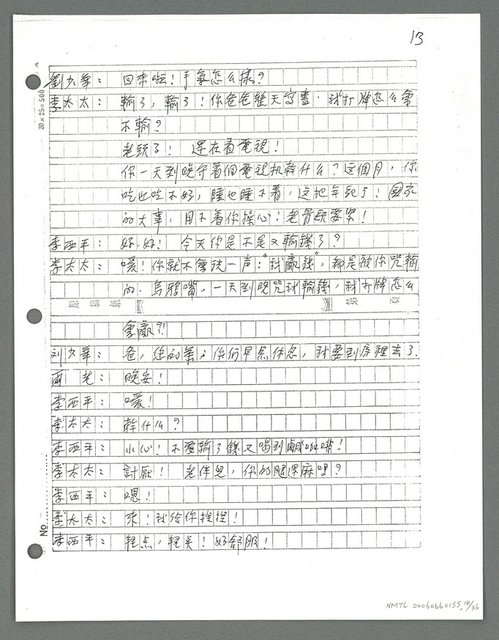 13
劉大華：回來啦！手氣怎么樣？
李太太：輸了，輸了！你爸爸整天寫書，我打牌怎么會
不輸？
老頭子！還在看電視！
你一天到晚守着個電視机幹什么？這個月，你
吃也吃不好，睡也睡不着，這把年紀了！國家
的大事，用不着你操心！老骨頭要緊！
李西平：好，好！今天你是不是又輸錢了？
李太太：噯！你就不會說一声："我贏錢"，都是被你咒輸
的，烏鴉嘴，一天到晚咒我輸錢，我打牌怎么
會贏？！
劉大華：爸，您的藥，你們早點休息，我要到房裡去了。
兩老：晚安！
李西平：噯！
李太太：幹什么？
李西平：小心！不要輸了錢又喝到鹹
李太太：討厭！老伴兒，你的腿還麻嗎？
李西平：嗯！
李太太：來！我給你捏捏！
李西平：輕点，輕点！好舒服！
20×25=500
No
NMTL 20060660155, 14/36